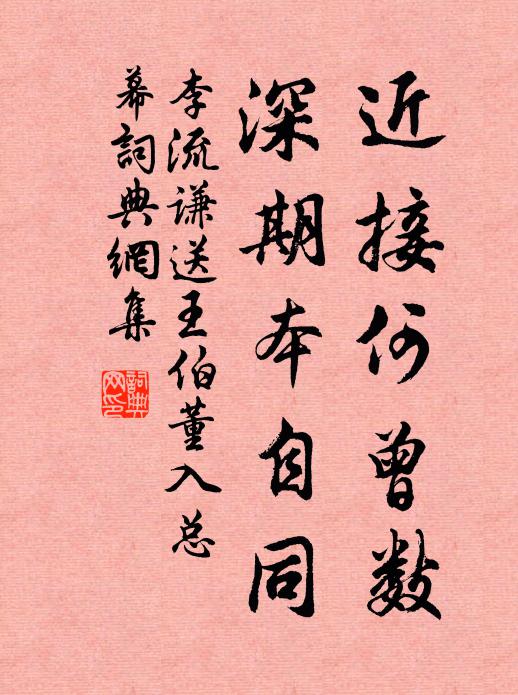 近接何曾數
深期本自同
李流謙送王伯董入总
幕詞典網集
詞典
网印